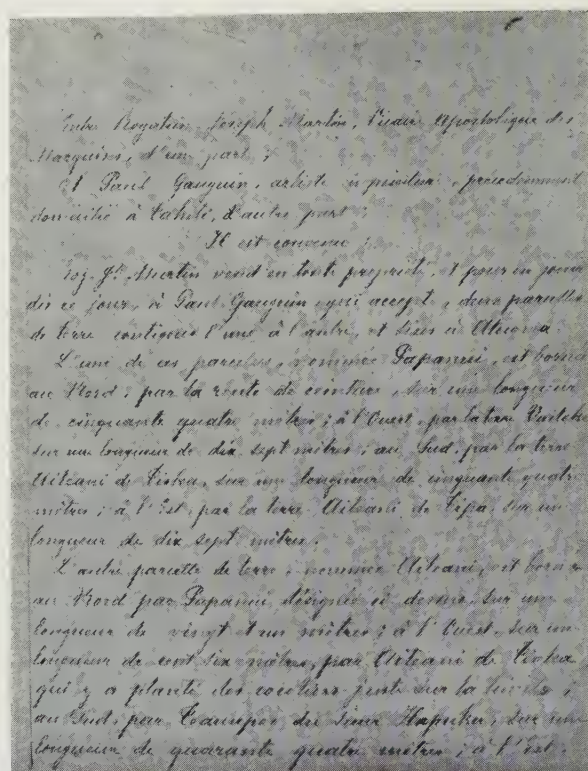 Entre Rogatien Joseph Martin, Vicaire Apostolique des
Marquises, d'une part ;
Et Paul Gauguin, artiste peintre, précédemment
domicilié à Tahiti, d'autre part ;
Il est convenu :
Rog. Jh. Martin vend en toute propriété, et pour en jouir
dès ce jour, à Paul Gauguin, qui accepte, deux parcelles
de terre contigues l'une à l'autre, et sises à Atuona
L'une de ces parcelles, nommée Papanui, est bornée
au Nord, par la route de ceinture, sur une longueur
de cinquante quatre mètres ; à l'Ouest, par la terre
sur une longueur de dix sept mètres ; au Sud, par la terre
de sur une longueur de cinquante quatre
mètres ; à l'Est, par la terre de sur une
longueur de dix sept mètres.
L'autre parcelle de terre, nommée est bornée
au Nord par Papanui, désignée ci dessus, sur une
longueur de vingt et un mètres ; à l'Ouest, sur une
longueur de cent six mètres, par de
qui y a planté des cocotiers juste sur la limite ;
au Sud, par du sieur sur une
longueur de quarante quatre mètres ; à l'est,